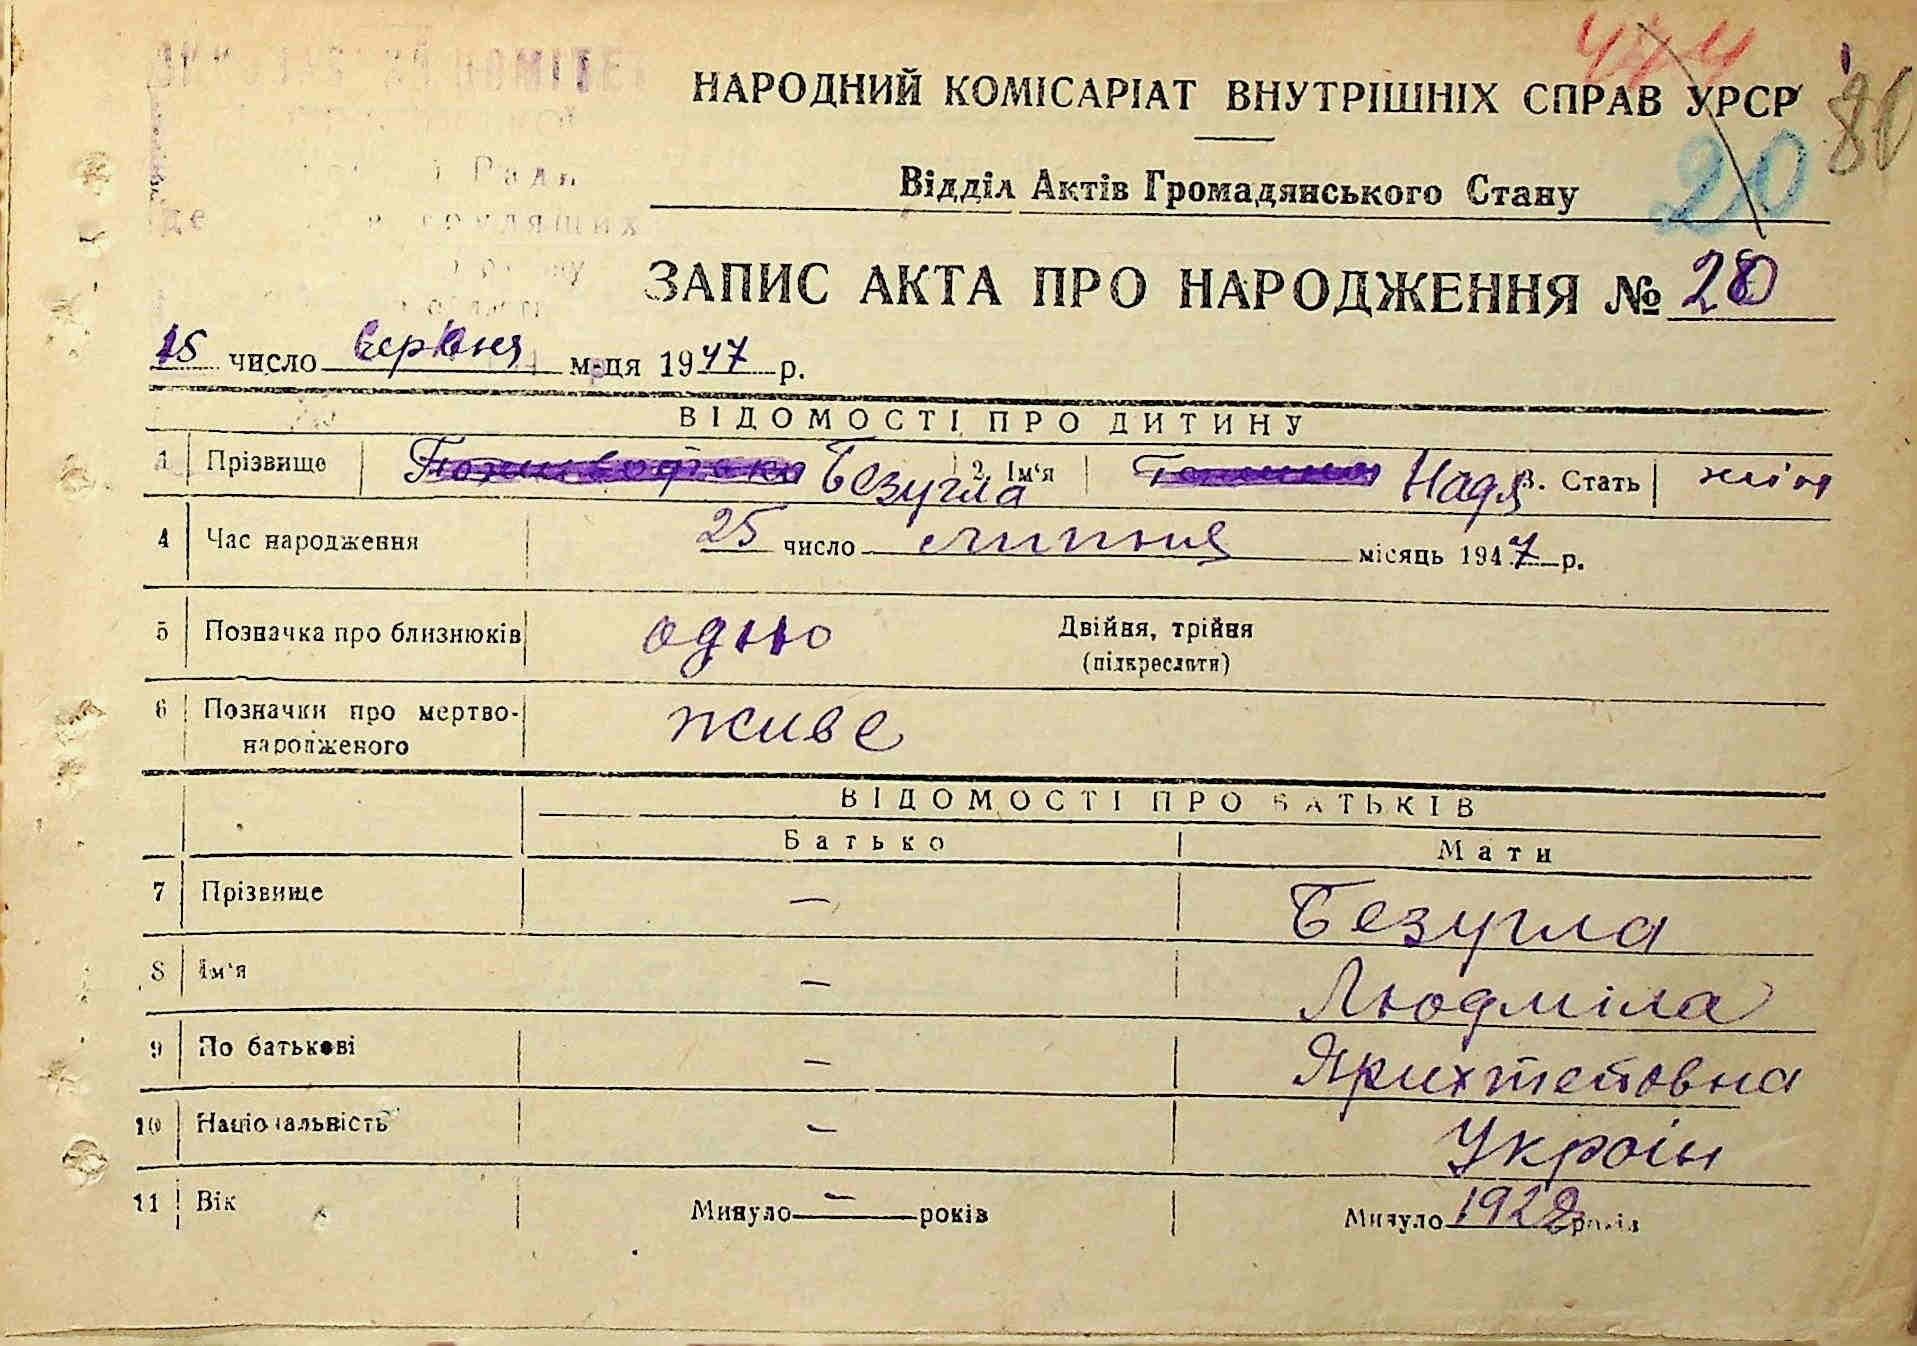 474
80
НАРОДНИЙ КОМІСАРІАТ ВНУТРІШНІХ СПРАВ УРСР
20
Відділ Актів Громадянського Стану
Ради
трудящих
ЗАПИС АКТА ПРО НАРОДЖЕННЯ № 20
15 число серпня м-ця 1947 р.
ВІДОМОСТІ ПРО ДИТИНУ
1 Прізвище Безугла 2. Ім'я Надя 3. Стать жін
4 Час народження 25 число липня місяць 1947 р.
5 Позначка про близнюків одно Двійня, трійня
(підкреслити)
6 Позначки про мертво-
народженого живе
ВІДОМОСТІ ПРО БАТЬКІВ
Батько Мати
7 Прізвище — Безугла
8 Ім'я — Людміла
9 По батькові —
10 Національність — Украін
11 Вік Минуло — років Минуло 1922 років